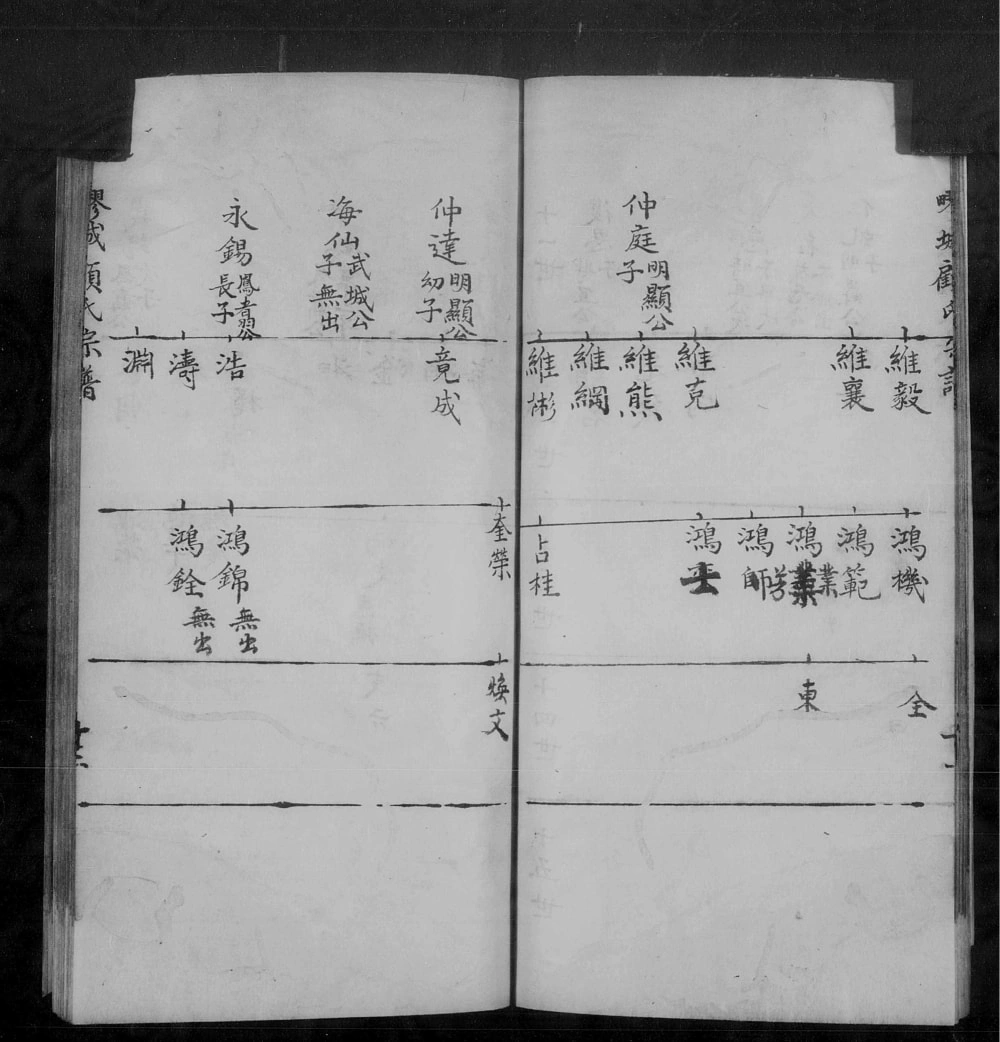 仲庭明顯公子
維毅
維襄
維克
維熊
維綱
維彬
鴻機
鴻範
鴻業
鴻師
鴻
占桂
全
東
仲達明顯公幼子
海仙武城公子無出
永錫鳳翥公長子
竟成
浩
濤
淵
奎榮
鴻錦無出
鴻銓無出
煥文
顧氏宗譜